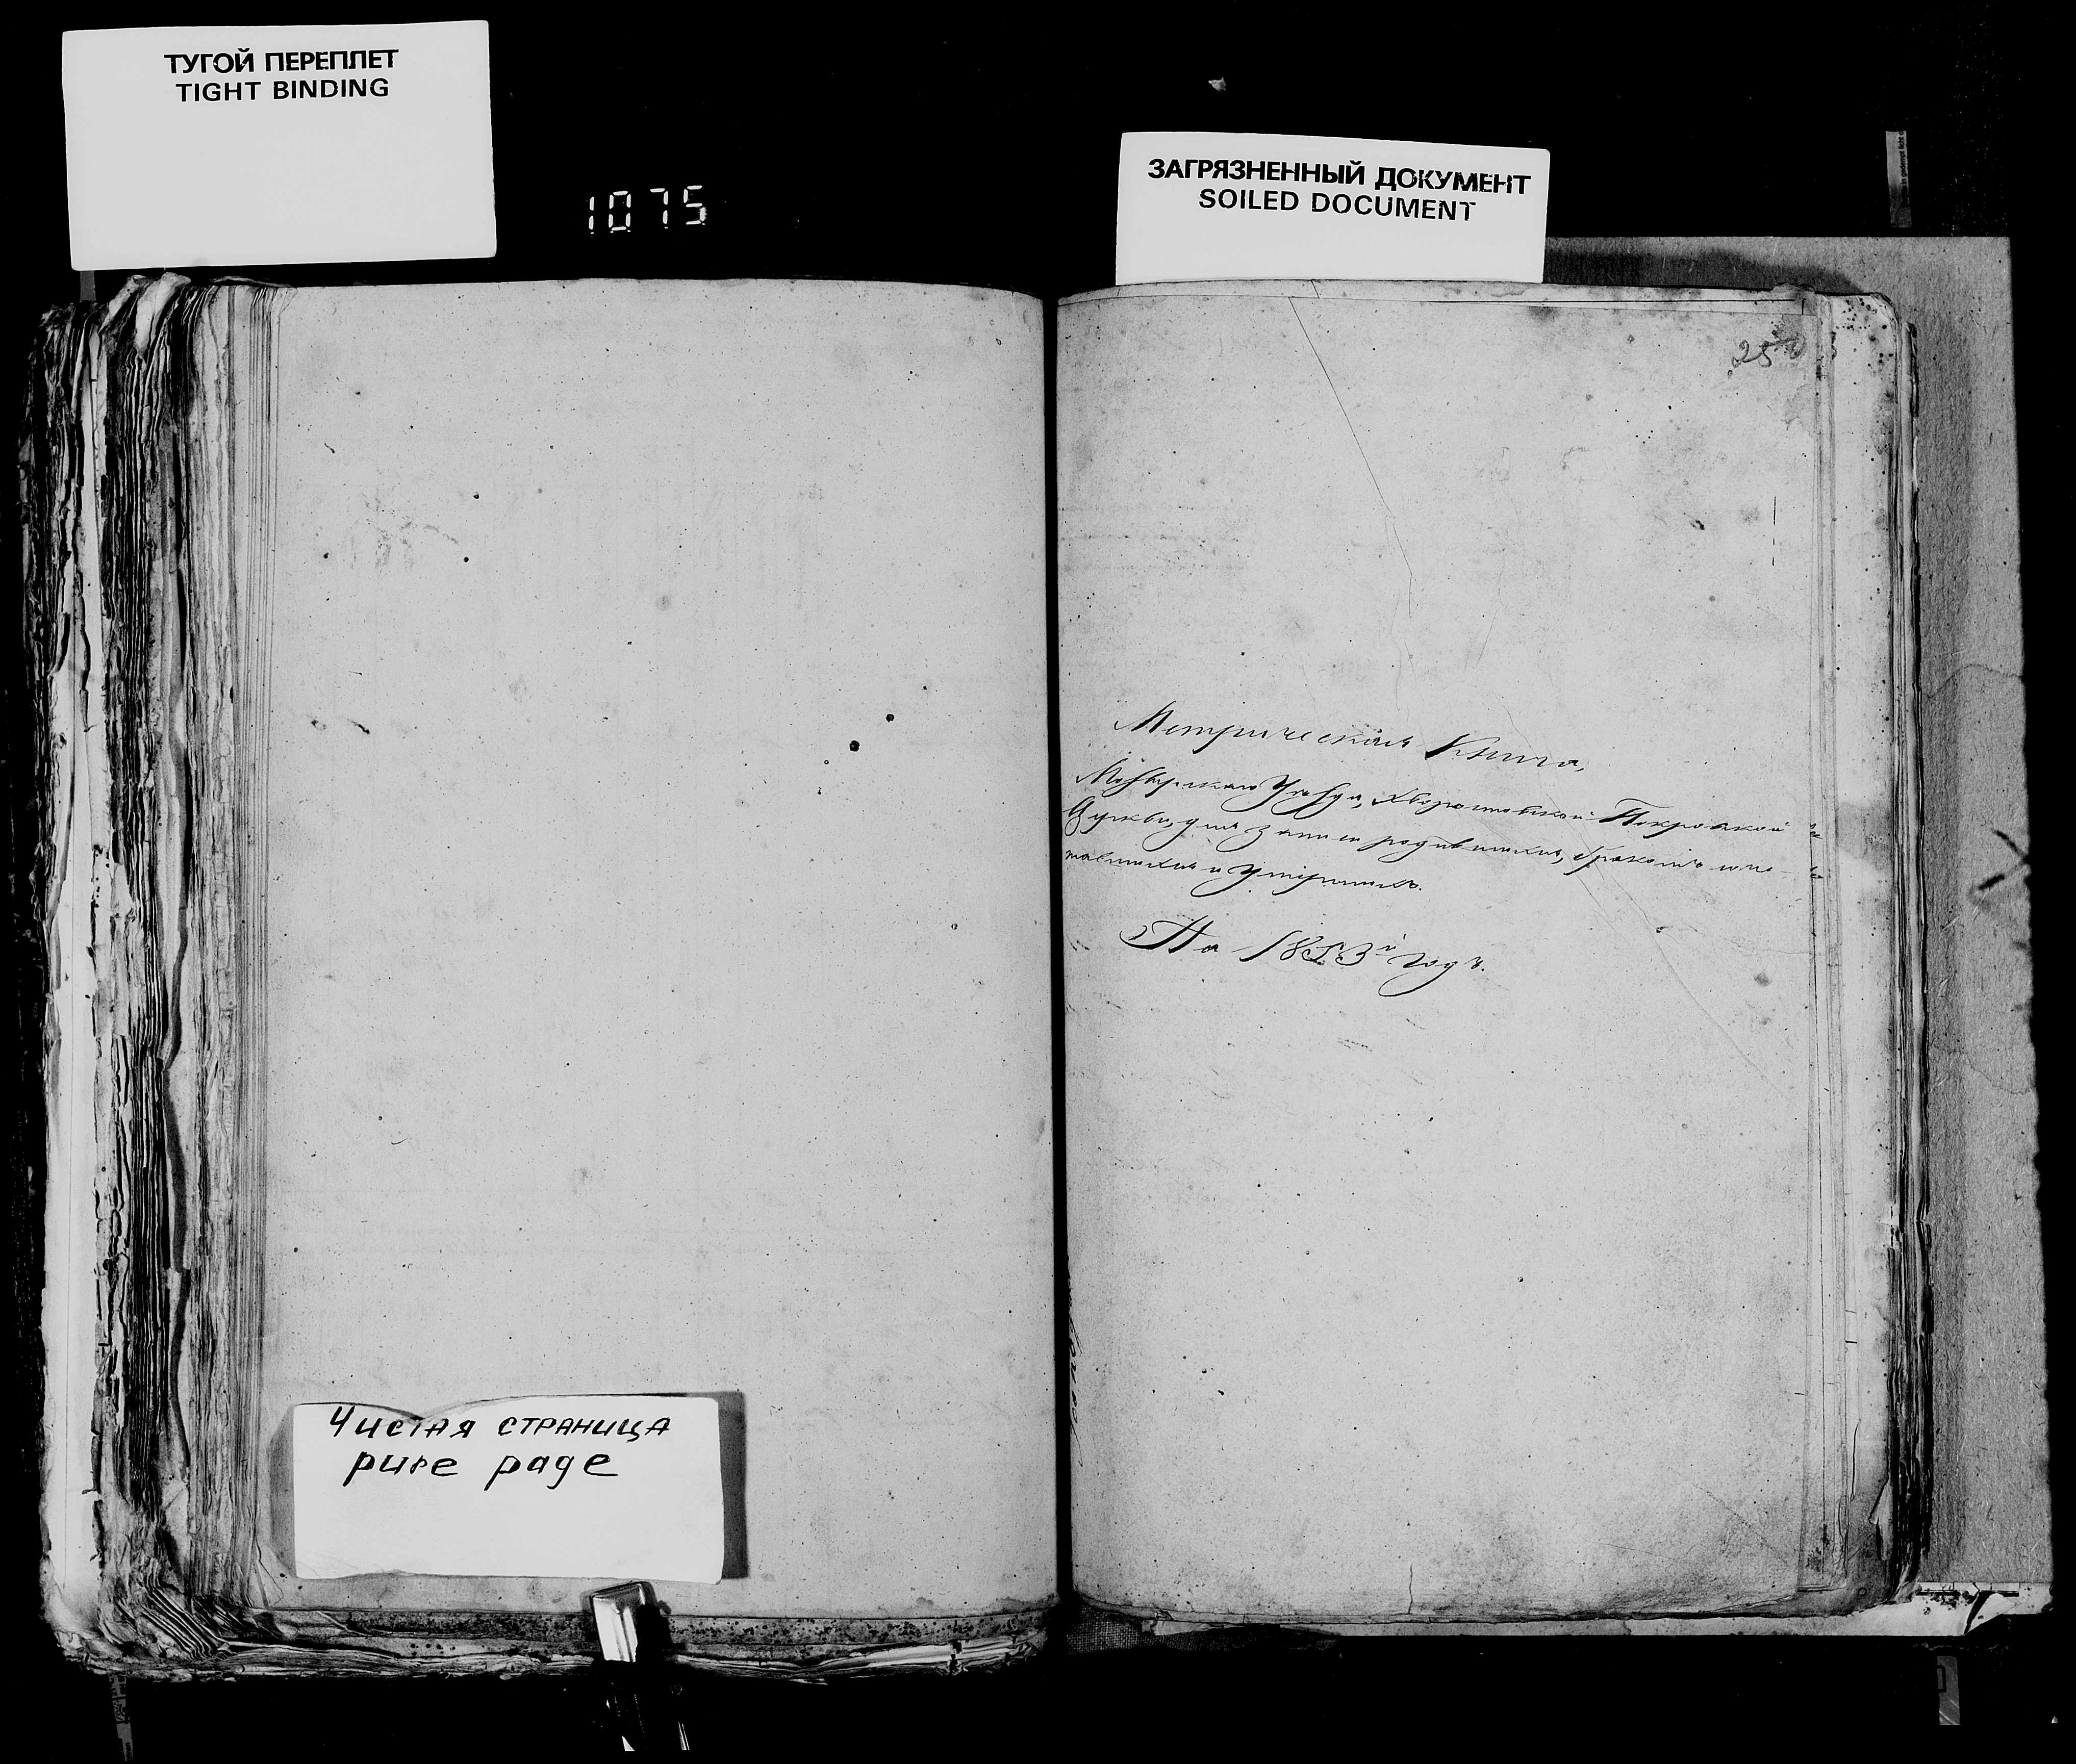 ТУГОЙ ПЕРЕПЛЕТ
TIGHT BINDING
1075
ЗАГРЯЗНЕННЫЙ ДОКУМЕНТ
SOILED DOCUMENT
Метрическая Книга,
Мозырскаго Уезда, Хворостовской Покровской
Церкви, для записи родившихся, бракомъ соче-
тавшихся и Умершихъ.
На 1853й годъ.
Чистая страница
pure page